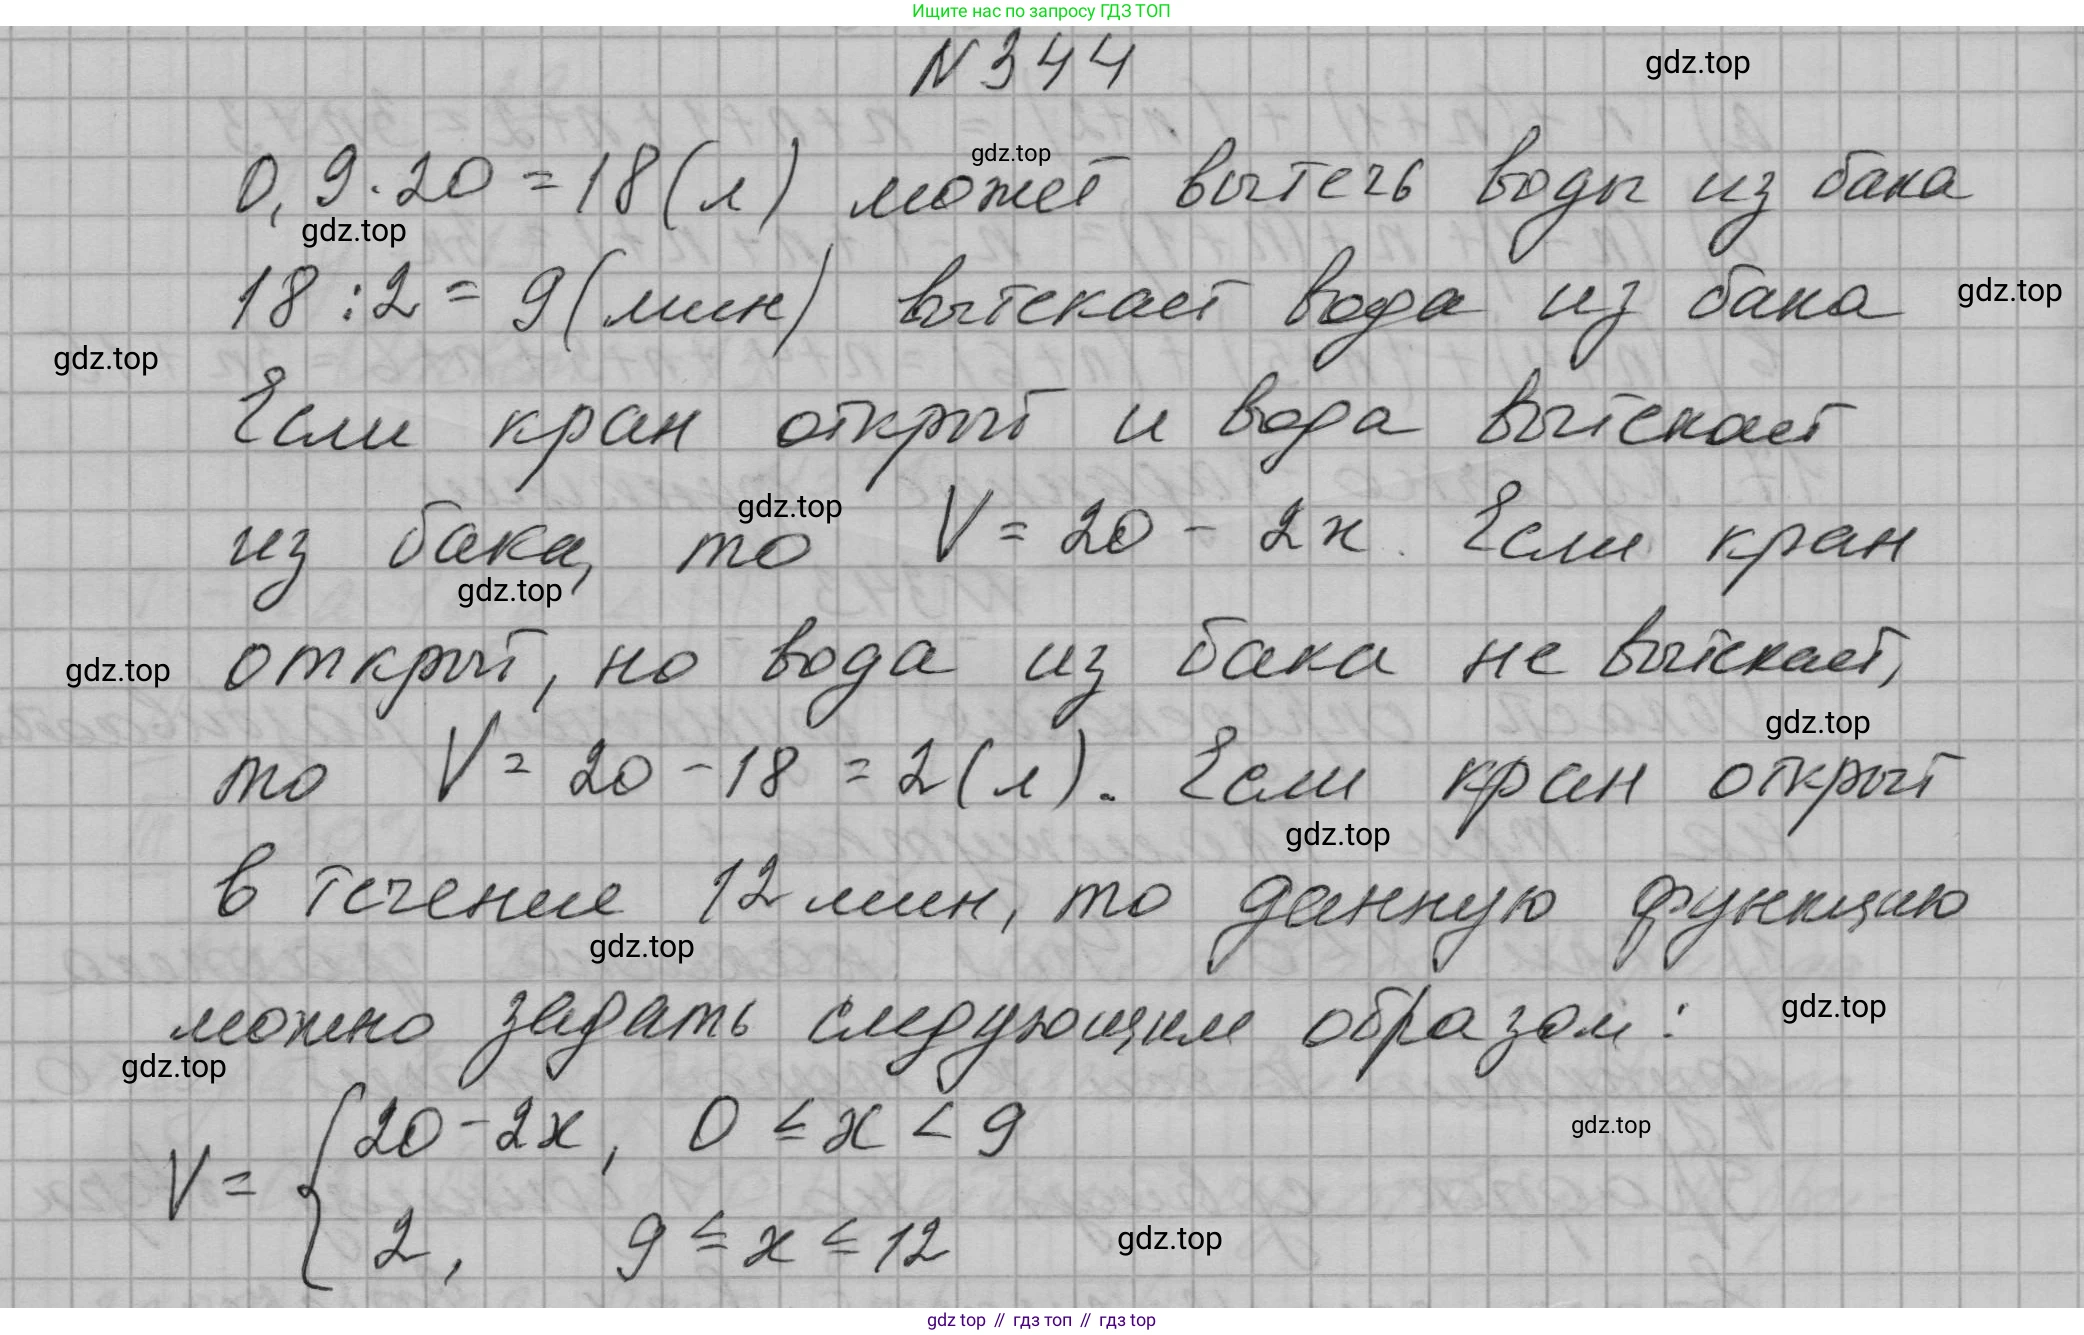 Ищите нас по запросу ГДЗ ТОП
N 344
gdz.top
gdz.top
0,9·20 = 18 (л) может вытечь воды из бака
gdz.top
18 : 2 = 9 (мин) вытекает вода из бака
gdz.top
gdz.top
Если кран открыт и вода вытекает
gdz.top
из бака, то V = 20 - 2x. Если кран
gdz.top
открыт, но вода из бака не вытекает,
gdz.top
gdz.top
то V = 20 - 18 = 2 (л). Если кран открыт
gdz.top
в течение 12 мин, то данную функцию
gdz.top
можно задать следующим образом:
gdz.top
gdz.top
V = { 20 - 2x, 0 ≤ x < 9
gdz.top
2, 9 ≤ x ≤ 12
gdz.top
gdz top // гдз топ // gdz top